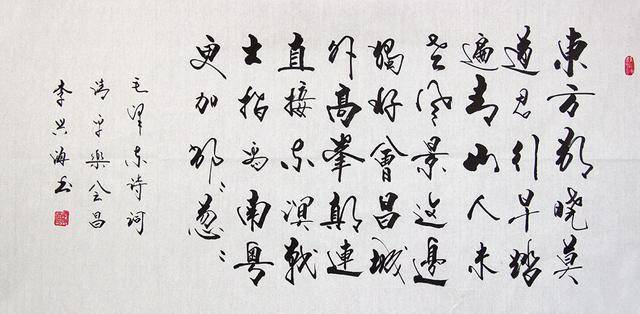 東方欲曉莫
道君行早踏
遍青山人未
老風景這邊
獨好會昌城
外高峯顛連
直接東溟戰
士指看南粵
更加郁〻葱〻
毛澤東詩詞
清平樂会昌
李兴海书